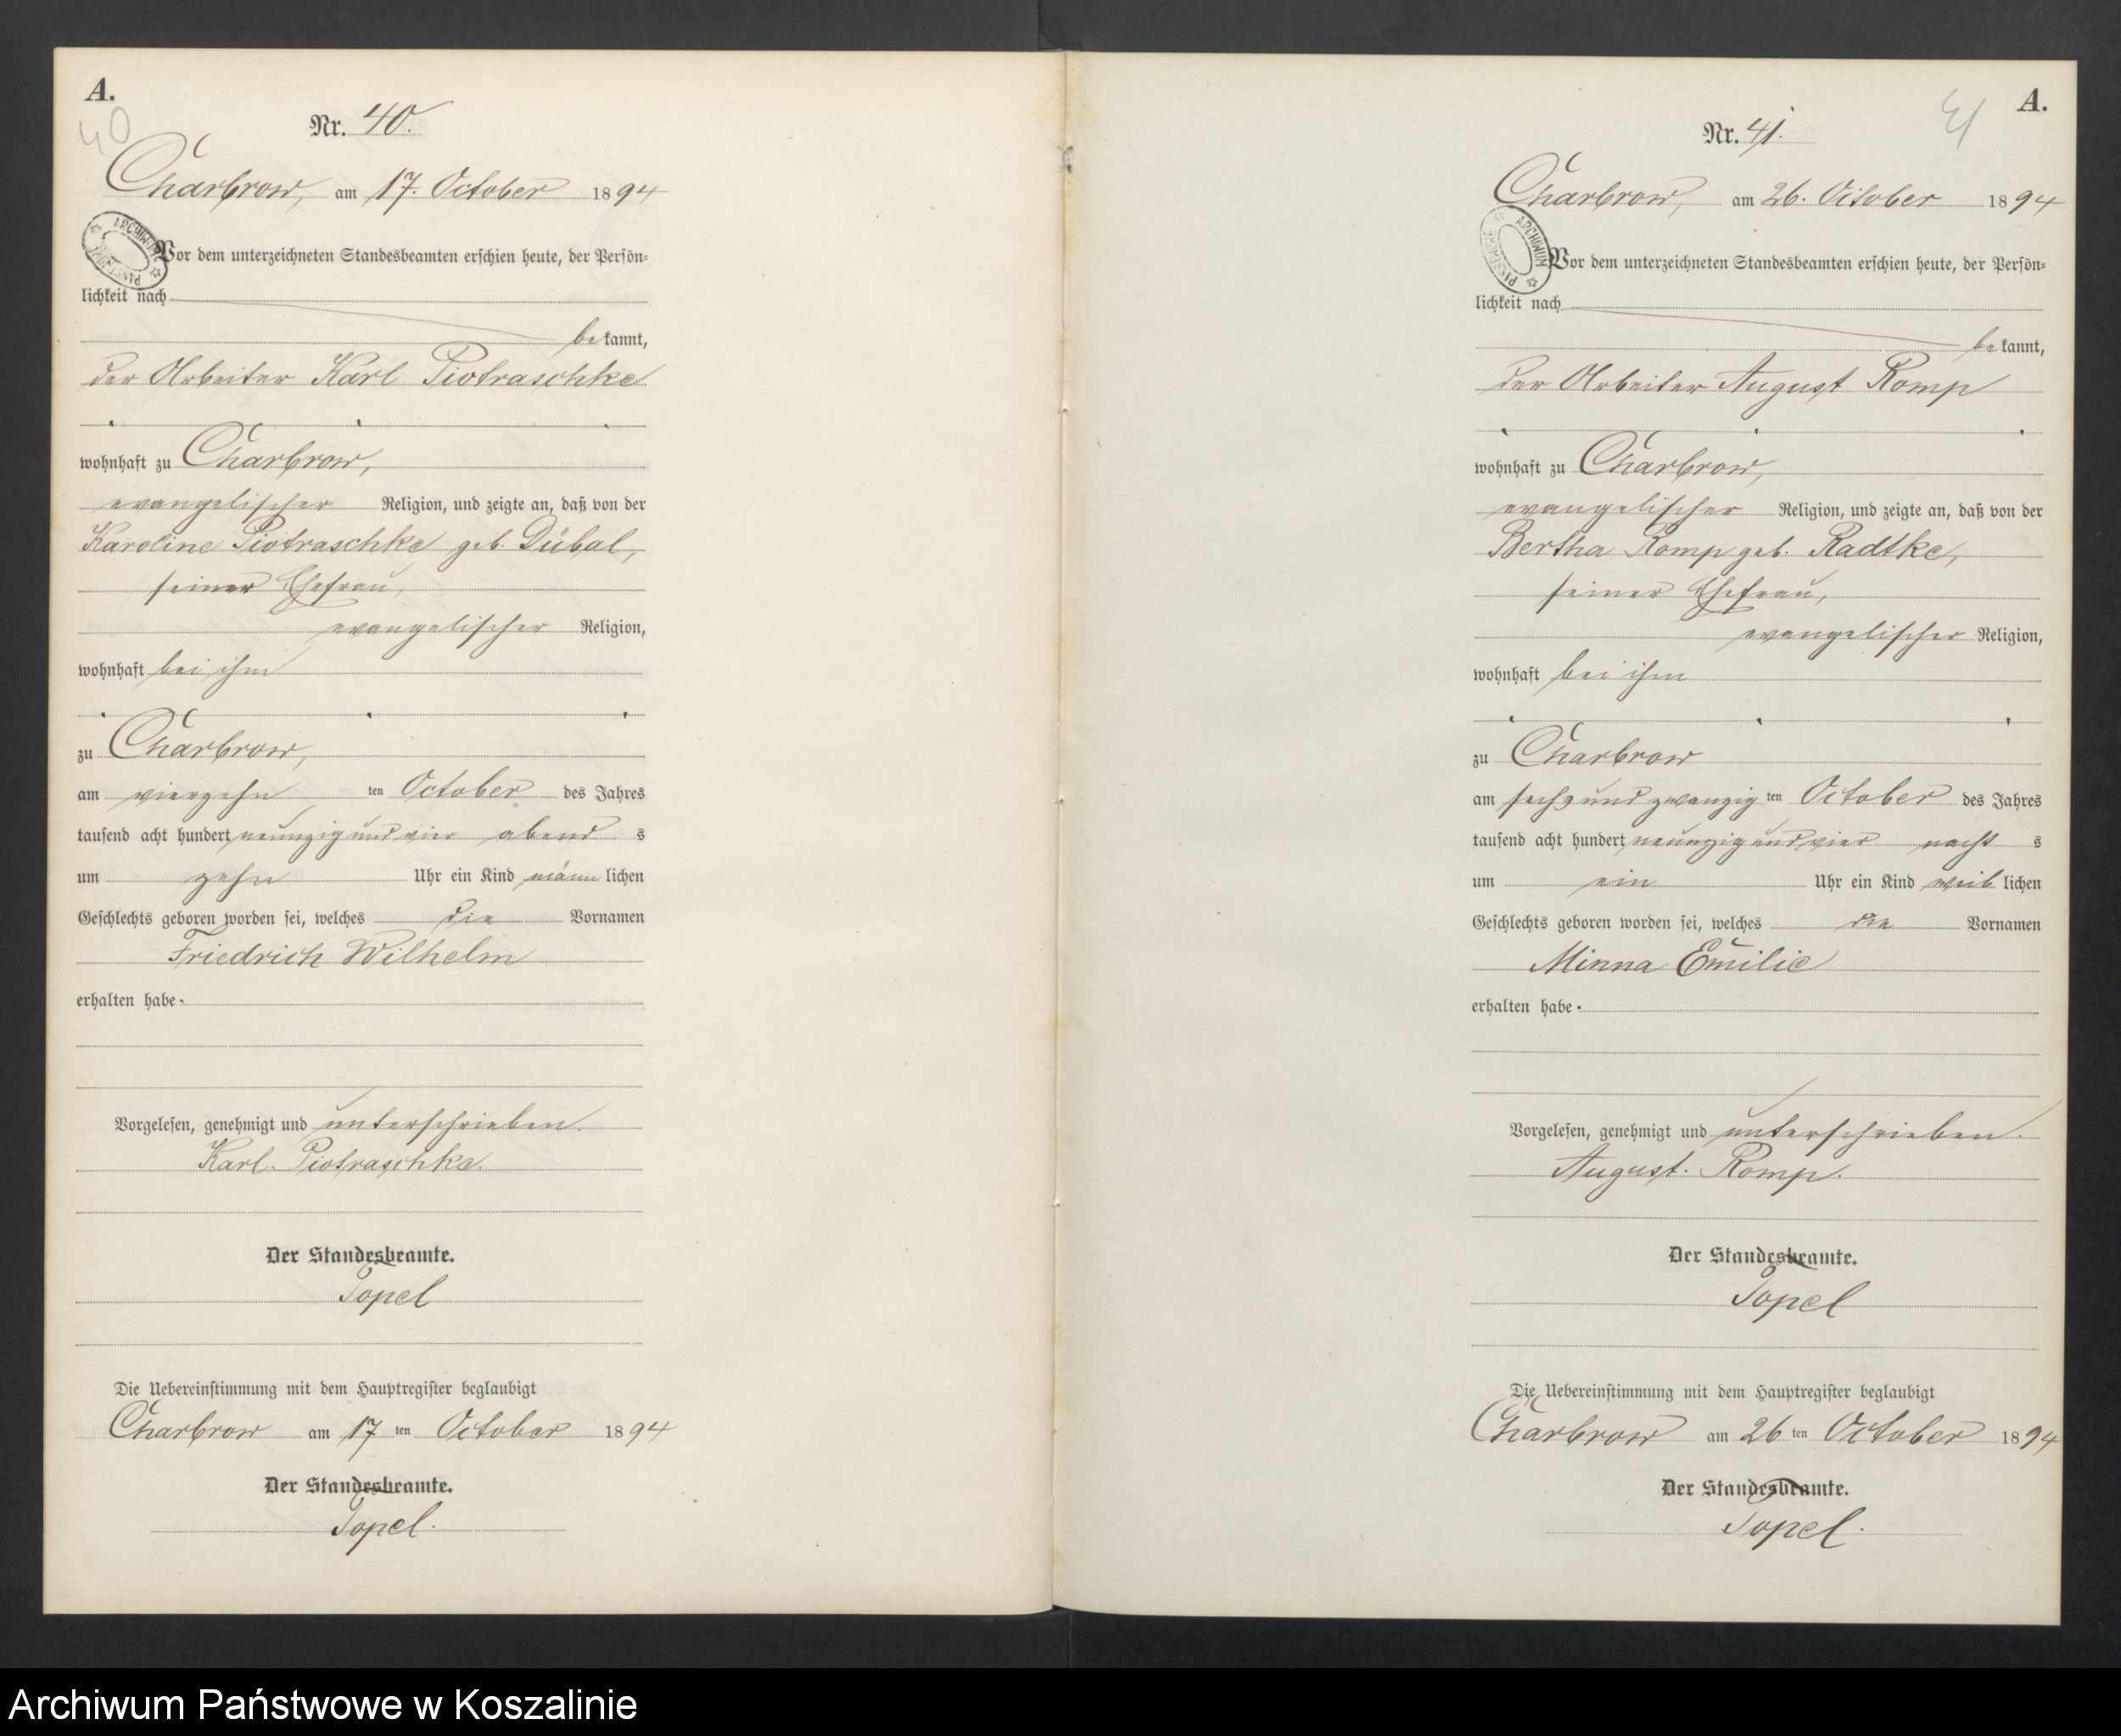 A.
40
Nr. 40.
Charbrow, am 17. October 1894
ARCHIWUM PAŃSTWOWE
Vor dem unterzeichneten Standesbeamten erschien heute, der Persön-
lichkeit nach
bekannt,
der Arbeiter Karl Piotraschke
wohnhaft zu Charbrow,
evangelischer Religion, und zeigte an, daß von der
Karoline Piotraschke geb. Dübal,
seiner Ehefrau,
evangelischer Religion,
wohnhaft bei ihm
zu Charbrow,
am vierzehn ten October des Jahres
tausend acht hundert neunzig und vier abend s
um zehn Uhr ein Kind männlichen
Geschlechts geboren worden sei, welches die Vornamen
Friedrich Wilhelm
erhalten habe.
Vorgelesen, genehmigt und unterschrieben.
Karl Piotraschke.
Der Standesbeamte.
Topel
Die Uebereinstimmung mit dem Hauptregister beglaubigt
Charbrow am 17 ten October 1894
Der Standesbeamte.
Topel.
A.
41
Nr. 41.
Charbrow, am 26. October 1894
ARCHIWUM PAŃSTWOWE
Vor dem unterzeichneten Standesbeamten erschien heute, der Persön-
lichkeit nach
bekannt,
der Arbeiter August Romp
wohnhaft zu Charbrow,
evangelischer Religion, und zeigte an, daß von der
Bertha Romp geb. Radtke,
seiner Ehefrau,
evangelischer Religion,
wohnhaft bei ihm
zu Charbrow
am sechs und zwanzig ten October des Jahres
tausend acht hundert neunzig und vier nacht s
um ein Uhr ein Kind weiblichen
Geschlechts geboren worden sei, welches die Vornamen
Minna Emilie
erhalten habe.
Vorgelesen, genehmigt und unterschrieben.
August. Romp.
Der Standesbeamte.
Topel
Die Uebereinstimmung mit dem Hauptregister beglaubigt
Charbrow am 26 ten October 1894
Der Standesbeamte.
Topel.
Archiwum Państwowe w Koszalinie